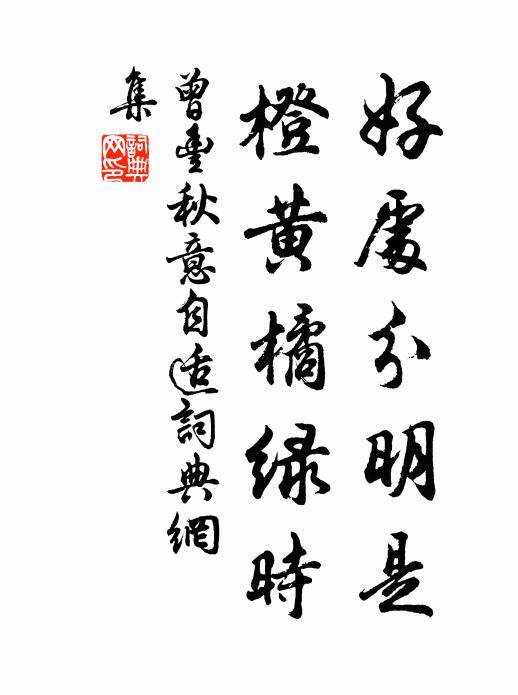 好處分明是
橙黃橘綠時
曾豐秋意自适詞典網
集
詞典網印